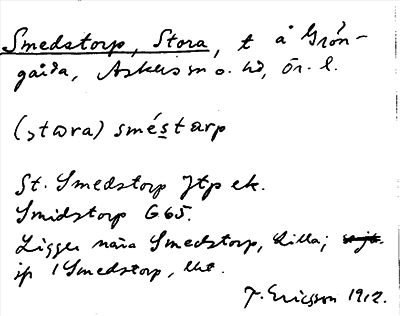 Smedstorp, Stora, t å Grön-
gärda, Askers sn o. hd, Ör. l.
(stora) sméstarp
St. Smedstorp Jtp ek.
Smidstorp G65.
Ligger nära Smedstorp, Lilla;
jp /Smedstorp, lht.
T. Ericsson 1912.